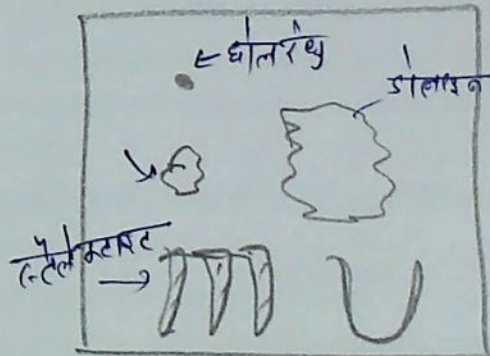 घोलरंध्र
डोलाइन
स्टैलेक्टाइट